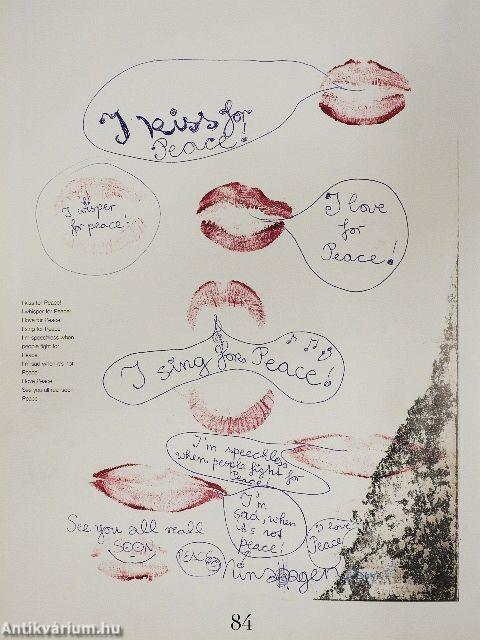 I kiss for
Peace!
I whisper
for peace!
I love
for
Peace!
I kiss for Peace!
I whisper for Peace!
I love for Peace
I sing for Peace
I'm speechless when
people fight for
Peace
I'm sad when it's not
Peace
I love Peace
See you all real soon
Peace
I sing for Peace!
I'm speechless
when people fight for
Peace!
I'm
sad, when
it's not
peace!
I love
Peace!
See you all reall
SOON
PEACE
Antikvárium.hu
84